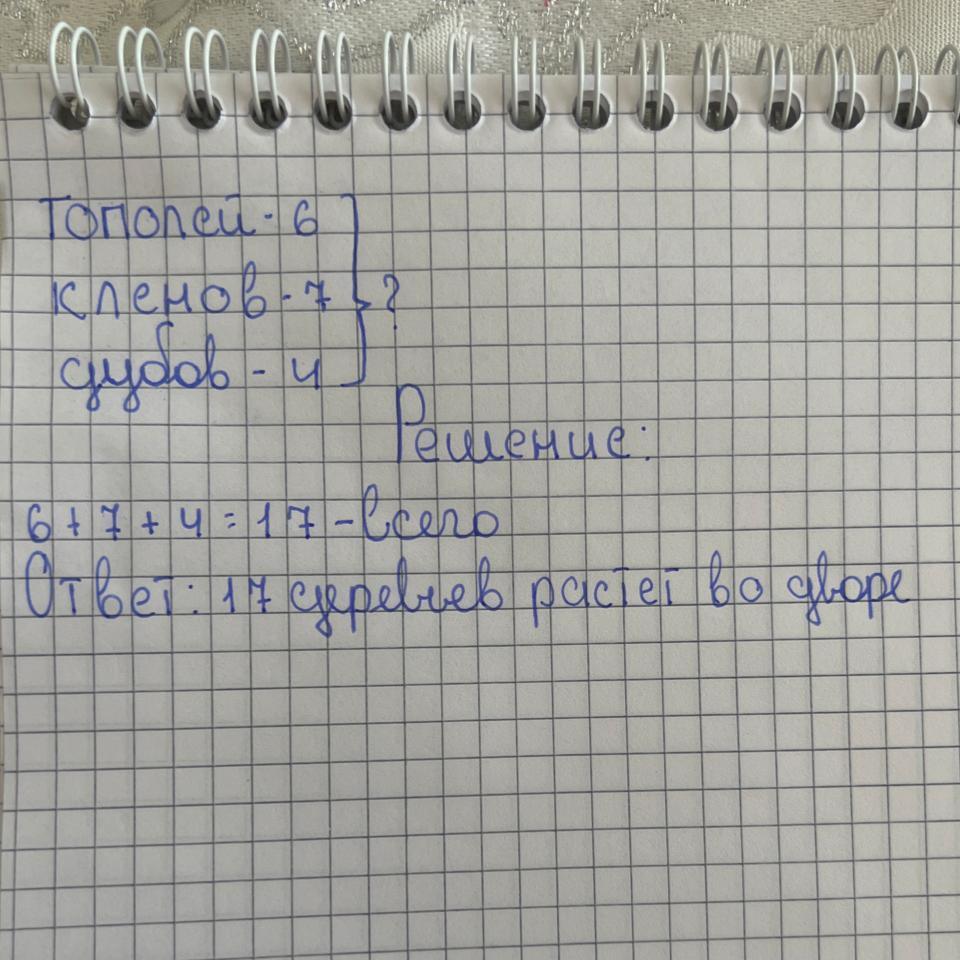 Тополей - 6
кленов - 7 } ?
дубов - 4
Решение:
6 + 7 + 4 = 17 - всего
Ответ: 17 деревьев растет во дворе